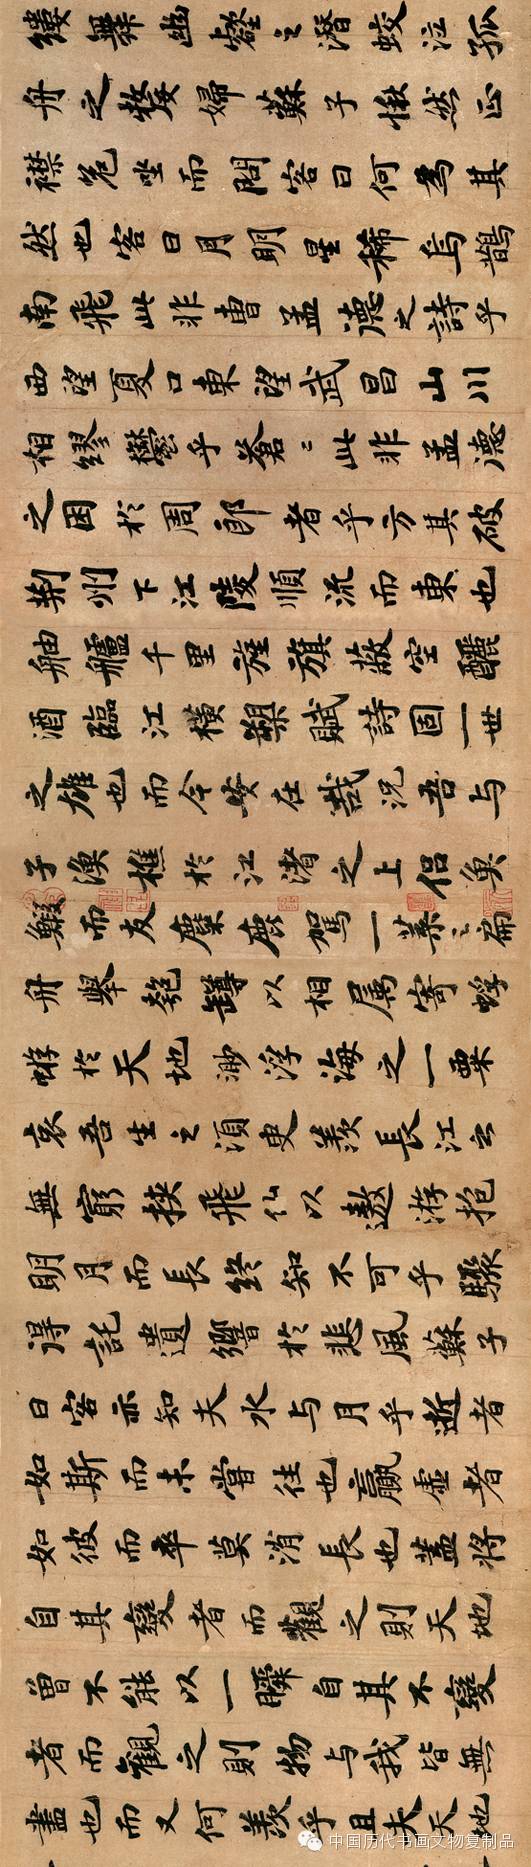 縷舞幽壑之潛蛟泣孤
舟之嫠婦蘇子愀然正
襟危坐而問客曰何為其
然也客曰月明星稀烏鵲
南飛此非曹孟德之詩乎
西望夏口東望武昌山川
相繆鬱乎蒼〻此非孟德
之困於周郎者乎方其破
荊州下江陵順流而東也
舳艫千里旌旗蔽空釃
酒臨江橫槊賦詩固一世
之雄也而今安在哉況吾与
子漁樵於江渚之上侶魚
鰕而友麋鹿駕一葉之扁
舟舉匏罇以相属寄蜉
蝣於天地渺浮海之一粟
哀吾生之須臾羨長江之
無窮挾飛仙以遨游抱
明月而長終知不可乎驟
得託遺響於悲風蘇子
曰客亦知夫水与月乎逝者
如斯而未嘗往也贏虛者
如彼而卒莫消長也蓋將
自其變者而觀之則天地
曾不能以一瞬自其不變
者而觀之則物与我皆無
盡也而又何羨乎且夫天地
中国历代书画文物复制品